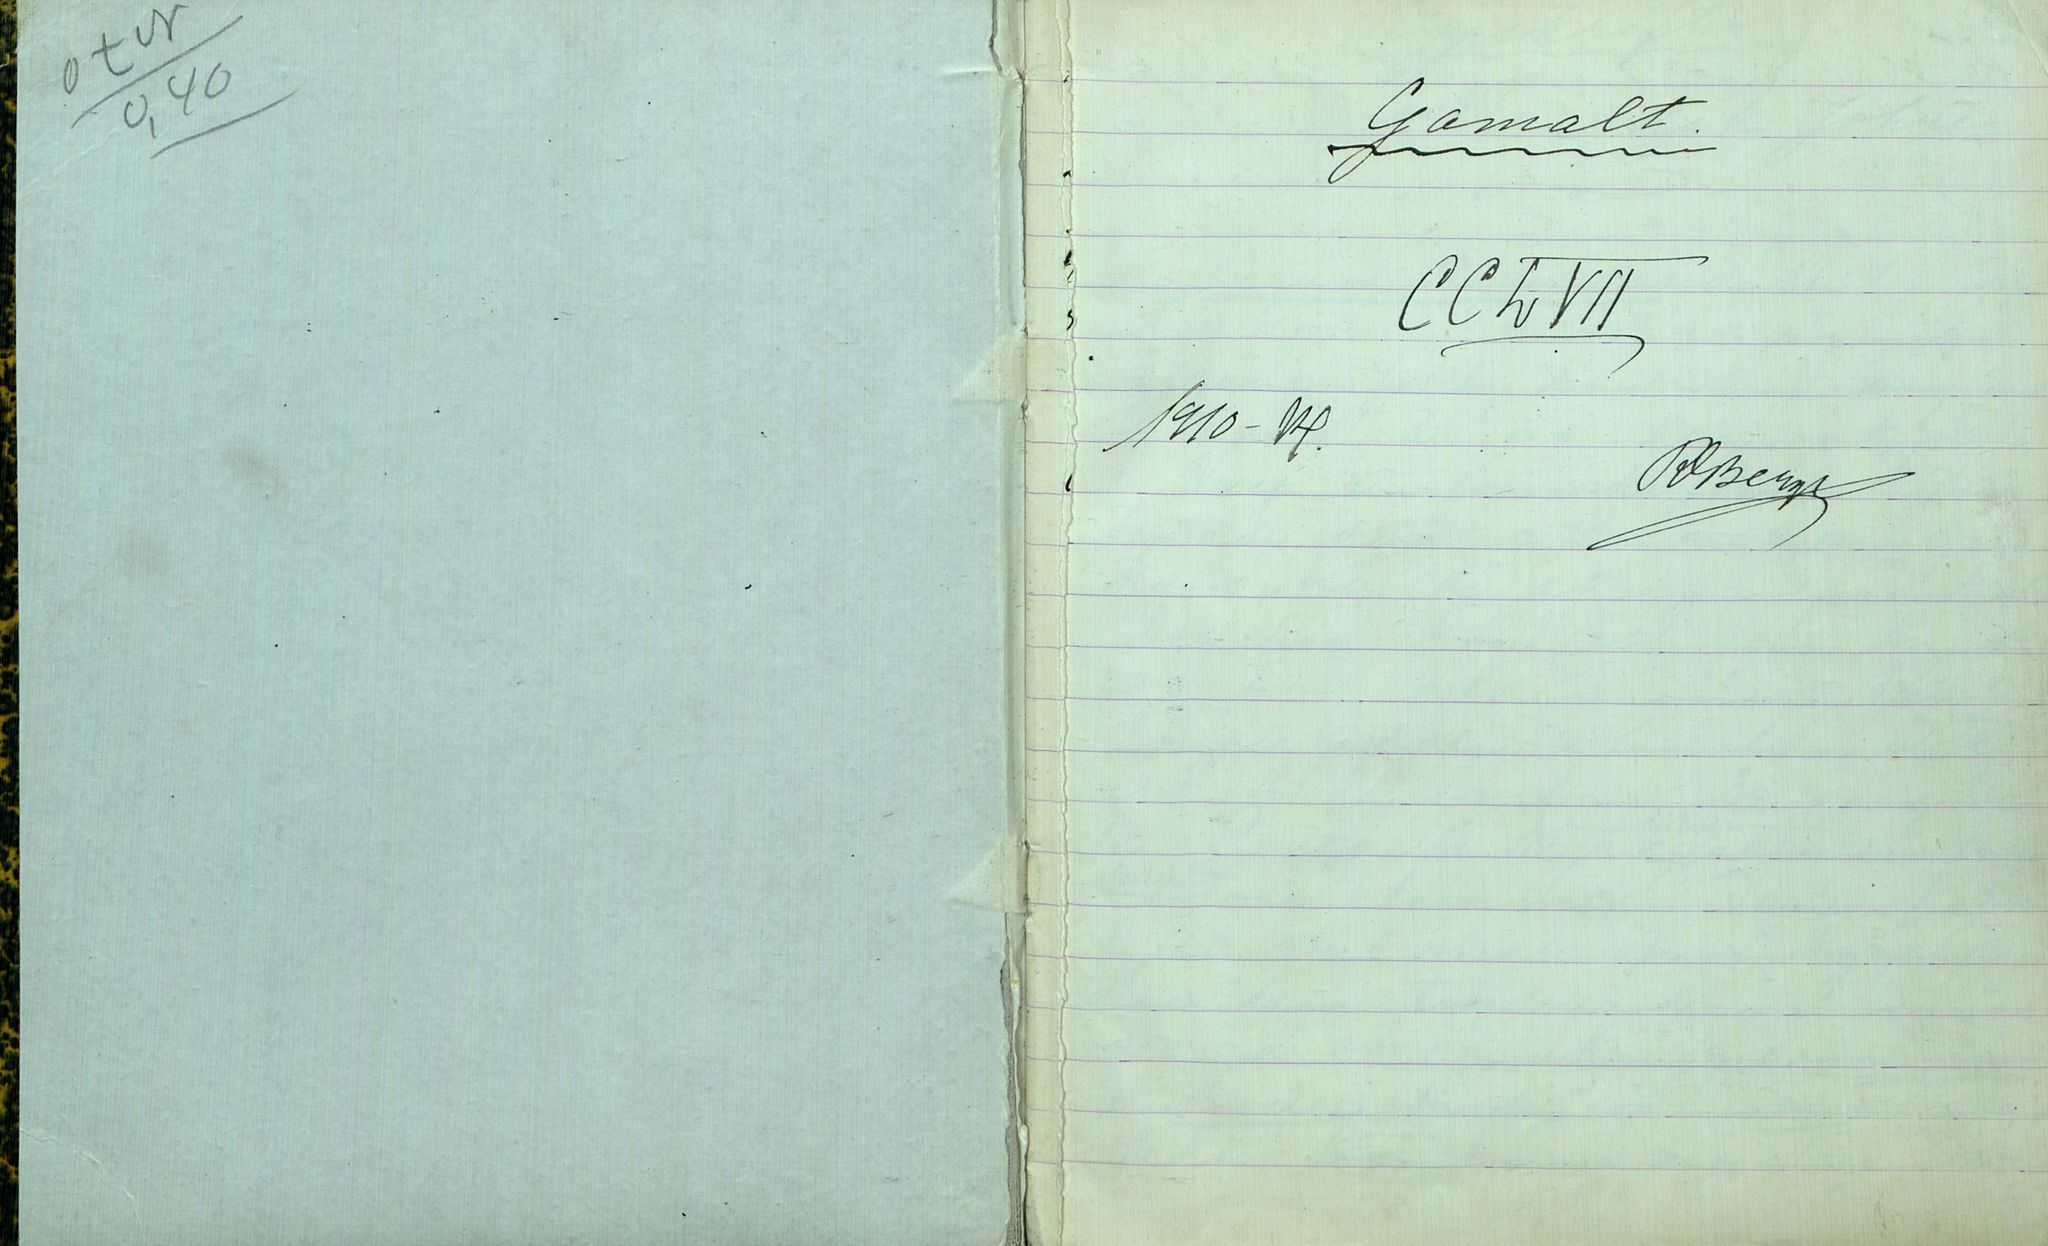 0,40
Gamalt.
CCLVII
1910-14.
RBerge